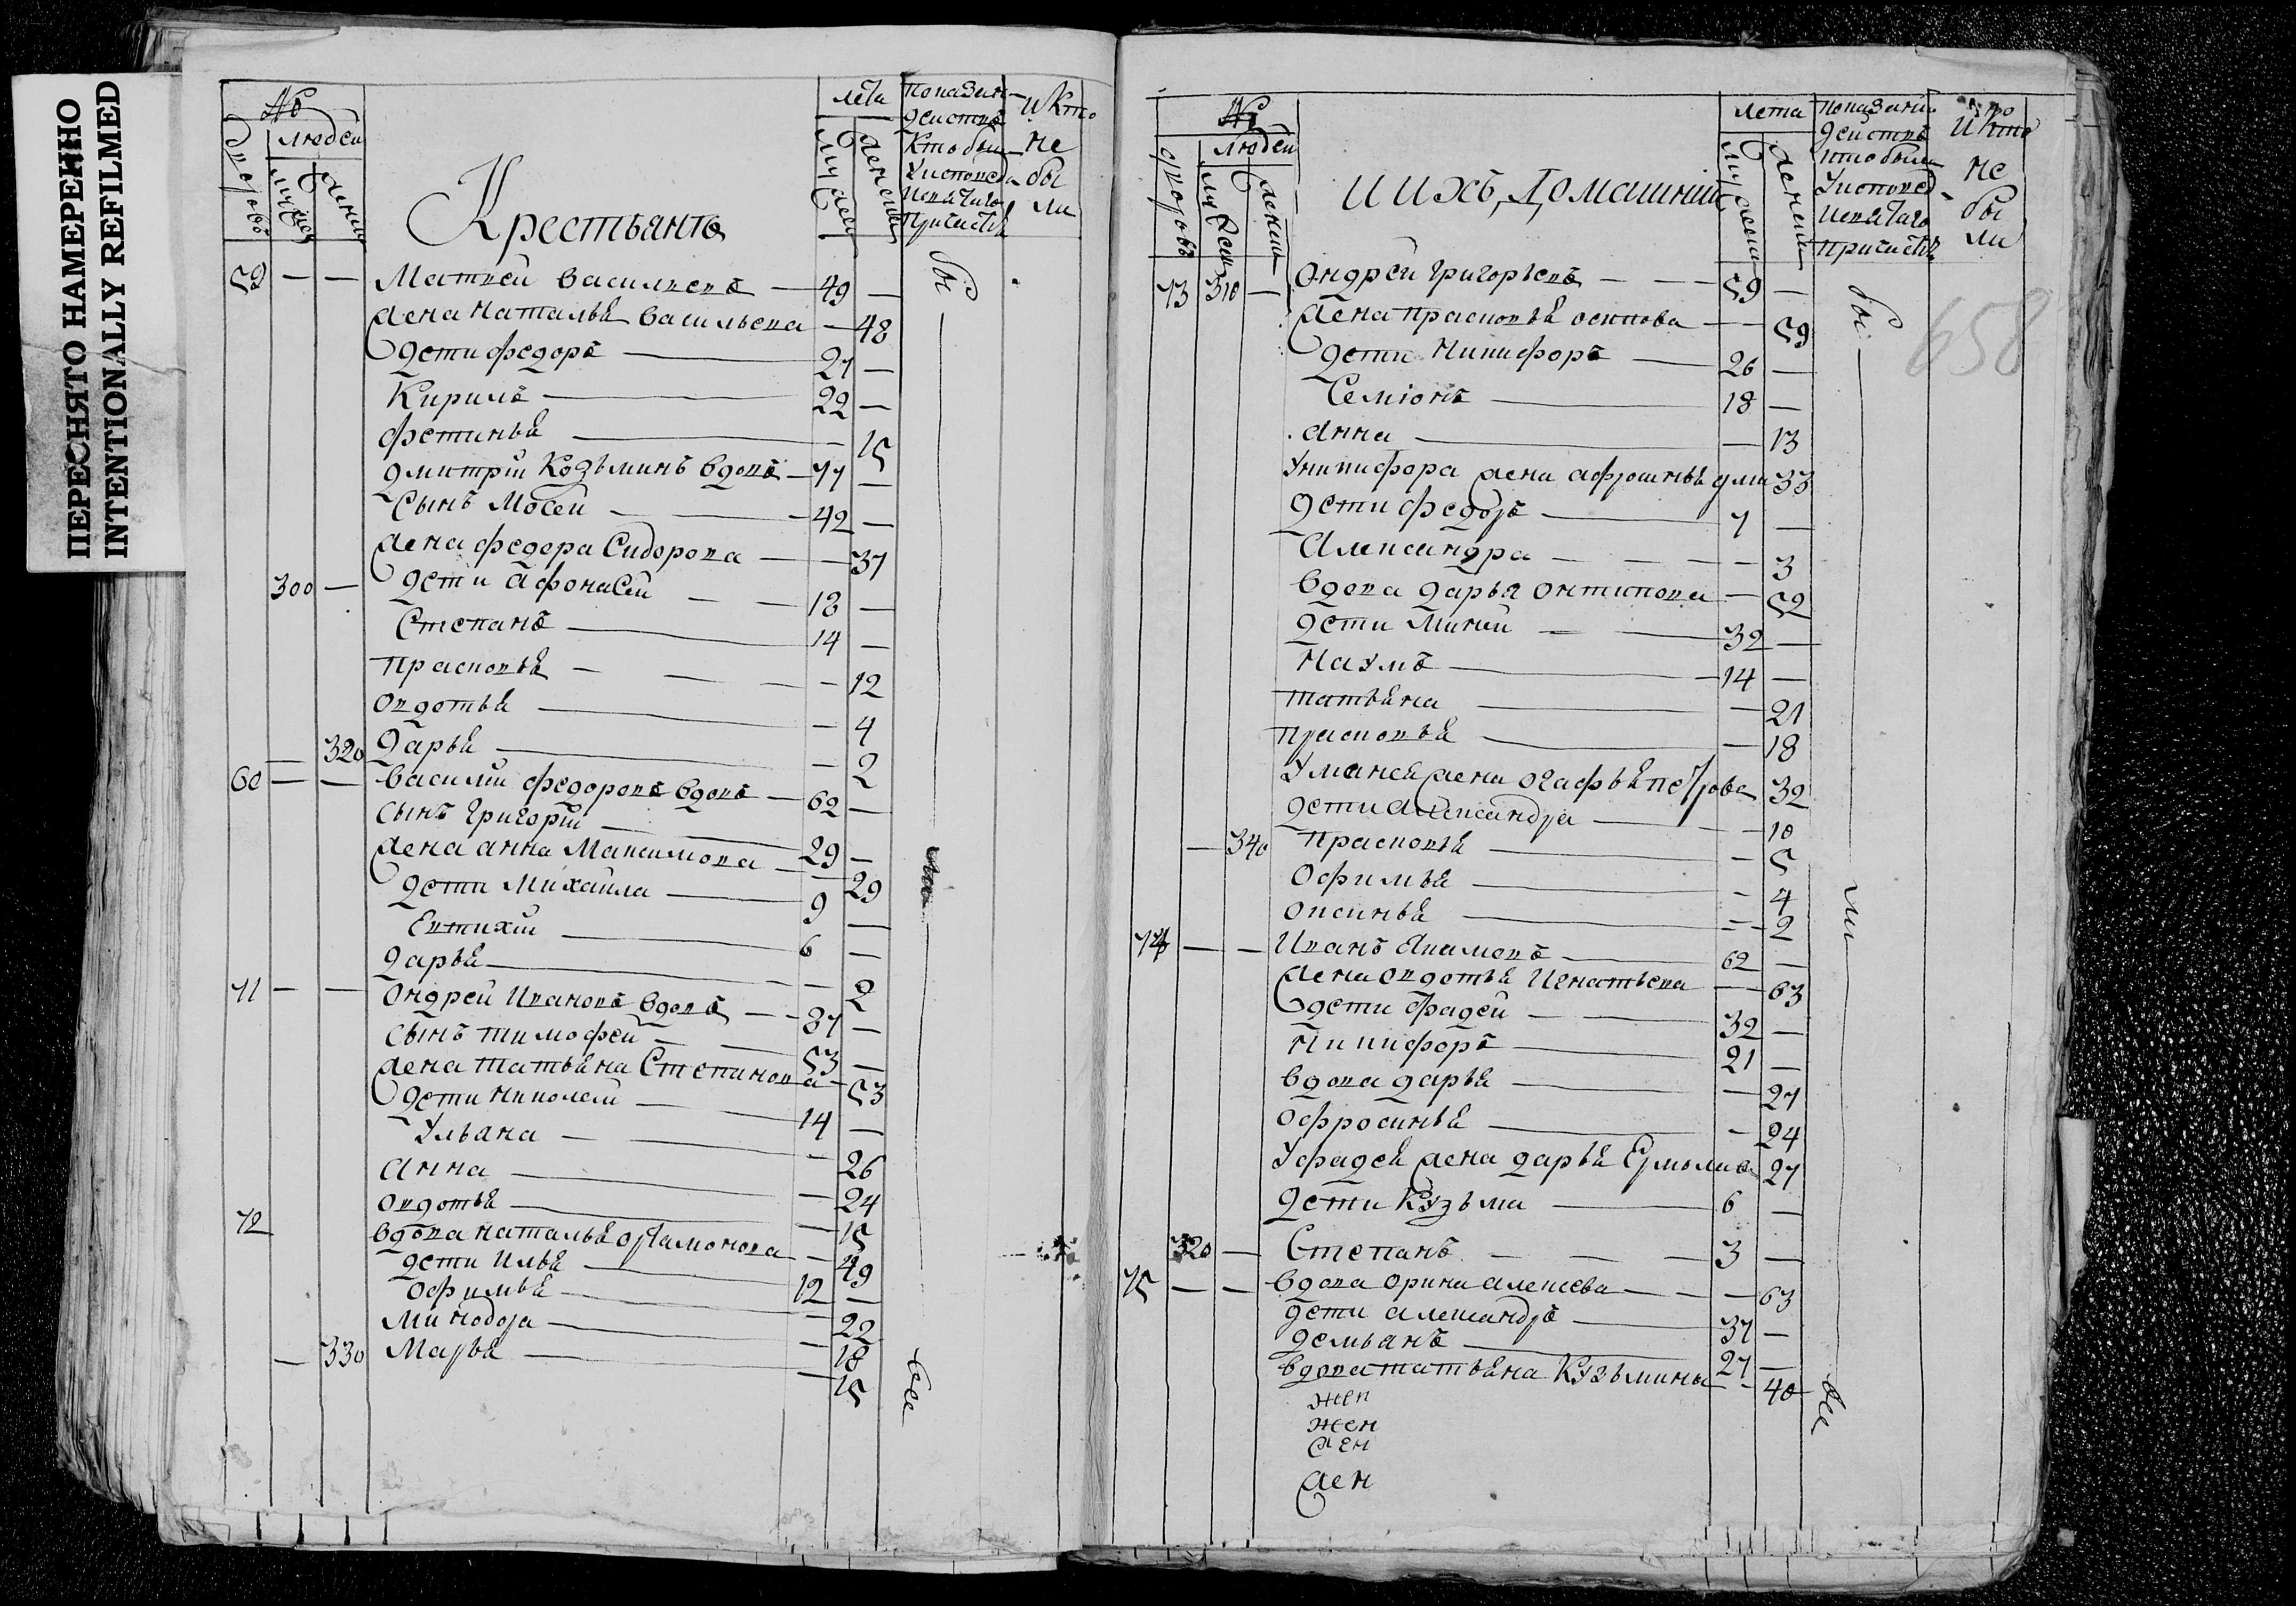 ПЕРЕСНЯТО НАМЕРЕННО
INTENTIONALLY REFILMED
№
людей
дворовъ
мужеск
женск
Крестьянъ
лета
мужеск
женска
показан
действъ
Кто были
У исповеди
и святаго
Причастия
и Кто
не
бы
ли
59 — — Матвей Васильевъ — 49 —
жена Наталья Васильева — 48
дети Федоръ — 27 —
Кирилъ — 22 —
Фетинья — 15
Дмитрий Козьминъ вдовъ — 77 —
Сынъ Мосей — 42 —
жена Федора Сидорова — 37
300 — дети Афонасей — 18 —
Степанъ — 14 —
Прасковья — 12
Овдотья — 4
— 320 Дарья — 2
60 — — Василий Федоровъ вдовъ — 62 —
Сынъ Григорий — 29 —
жена Анна Максимова — 29
дети Михайла — 9 —
Евтихий — 6 —
Дарья — 2
71 — — Ондрей Ивановъ вдовъ — 87 —
Сынъ Тимофей — 53 —
жена Татьяна Степанова — 53
дети Николай — 14 —
Ульана — 26
Анна — 24
Овдотья — 15
72 вдова Наталья Артамонова — 49
дети Илья — 12 —
Офимья — 22
Минодора — 18
— 330 Марья — 15
бы
ли
все
№
людей
дворовъ
мужеск
женска
и ихъ, Домашнии
лета
мужеска
женска
показани
действъ
кто были
У исповед
и святаго
причастия
и кто
не
бы
ли
658
73 310 — Ондрей Григорьевъ — 59 —
жена Прасковья Осипова — 59
дети Никифоръ — 26 —
Семионъ — 18 —
Анна — 13
У Никифора жена Афросинья 33
дети Федоръ — 7 —
Александра — 3
вдова Дарья Онтипова — 52
дети Миней — 32 —
Наумъ — 14 —
Татьяна — 21
Прасковья — 18
У Минея жена Огафья Петрова 32
дети Александра — 10
— 340 Прасковья — 5
Офимья — 4
Оксинья — 2
74 — — Иванъ — 62 —
жена Овдотья Игнатьева — 63
дети Фадей — 32 —
Никифоръ — 21 —
вдова Дарья — 27
Офросинья — 24
У Фадея жена Дарья Ермолиа 27
дети Кузьма — 6 —
320 — Степанъ — 3 —
75 — — вдова Орина Алексева — 63
дети Александръ — 37 —
Демьанъ — 27 —
вдова Татьяна Кузьмина — 40
бы
ли
все
жен
жен
жен
жен